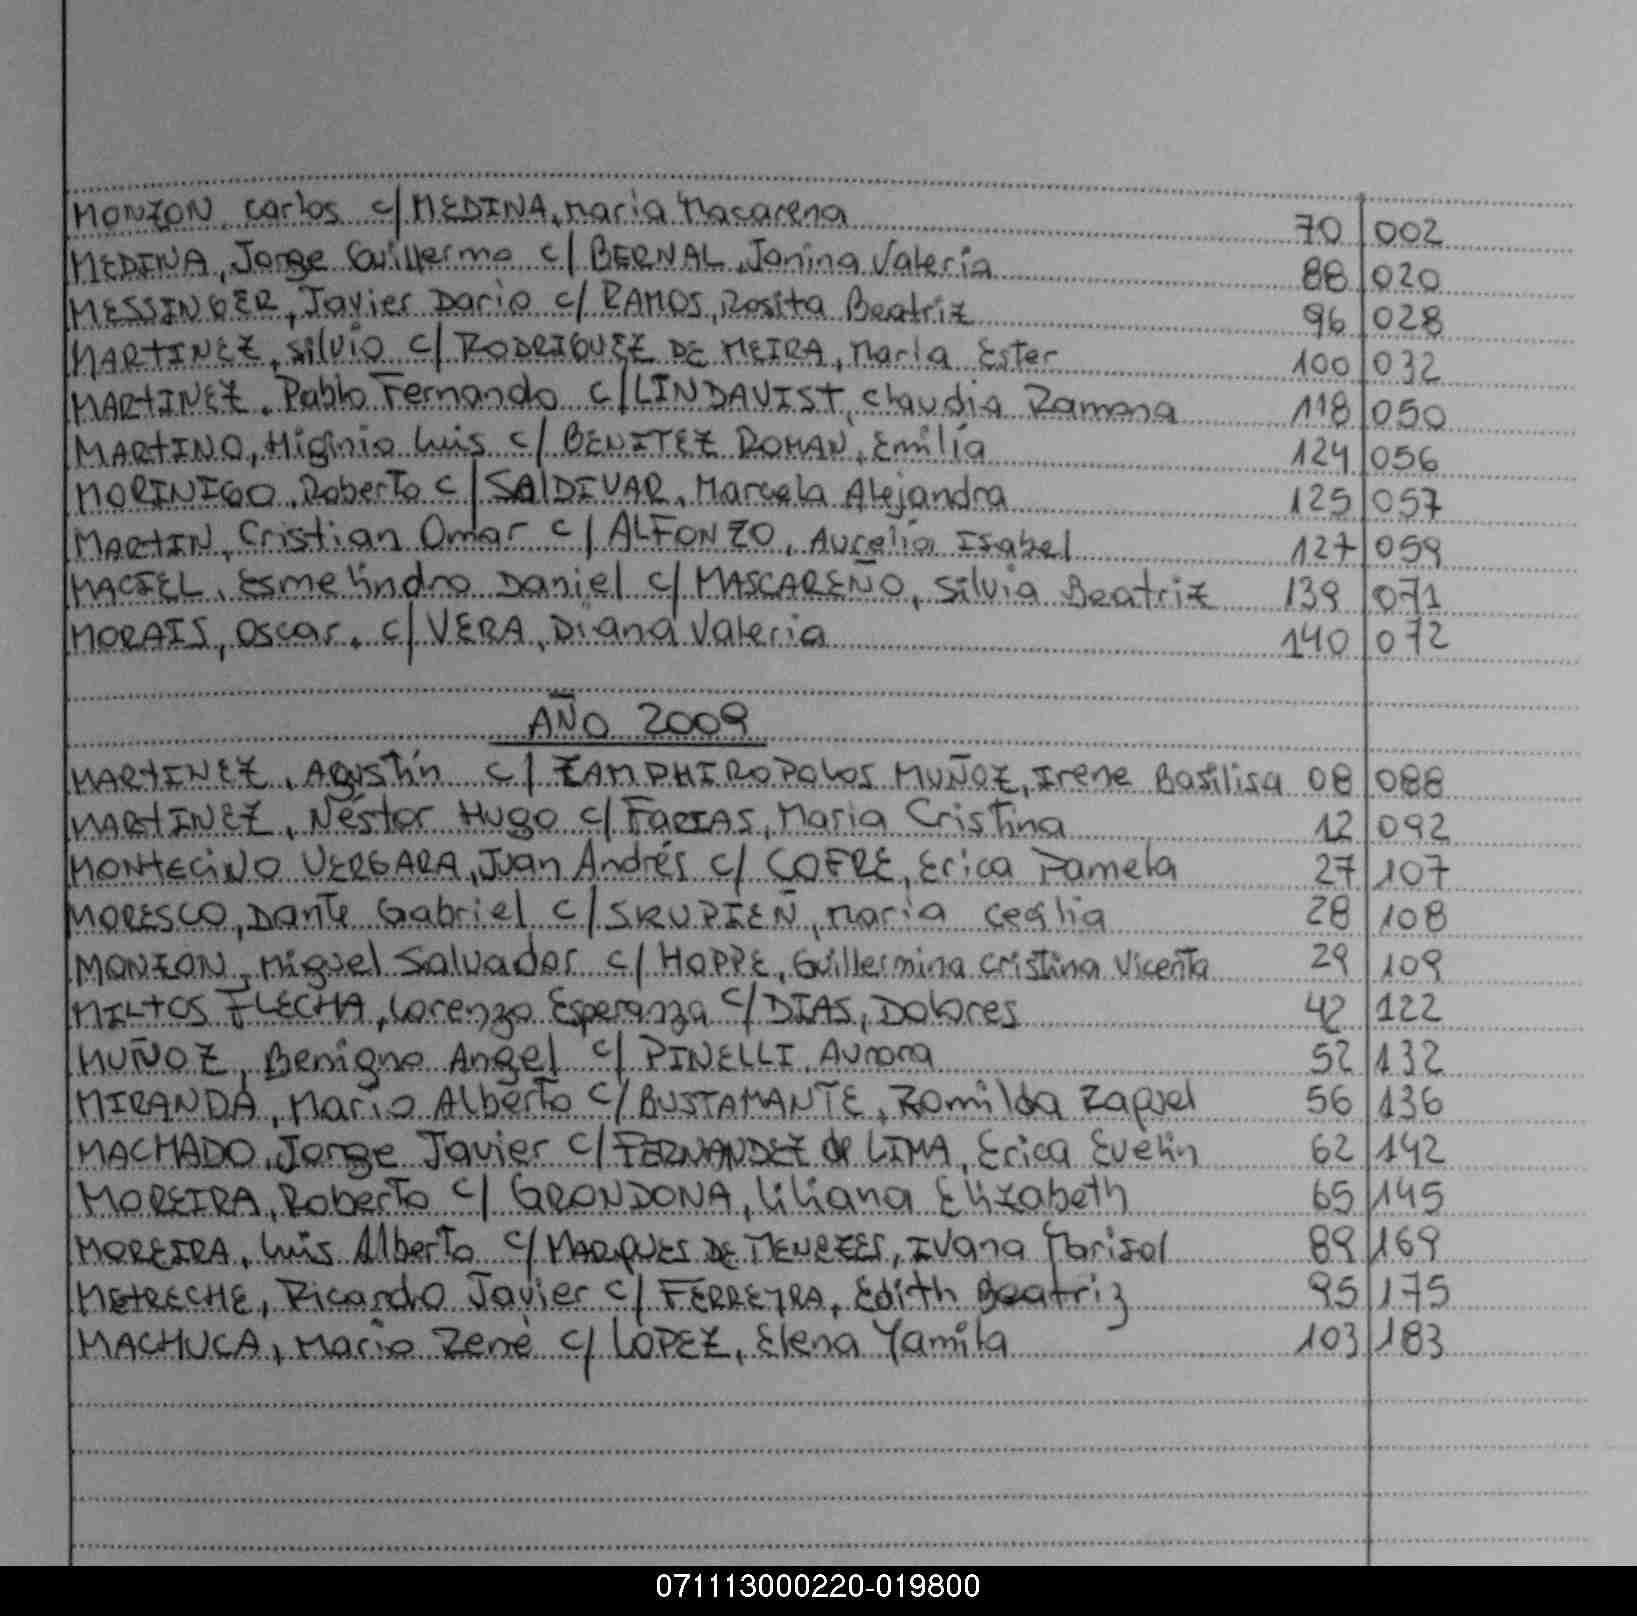 MONZON, Carlos c/ MEDINA, Maria Macarena 70 002
MEDINA, Jorge Guillermo c/ BERNAL, Janina Valeria 88 020
MESSINGER, Javier Dario c/ RAMOS, Rosita Beatriz 96 028
MARTINEZ, Silvio c/ RODRIGUEZ DE MEIRA, Maria Ester 100 032
MARTINEZ, Pablo Fernando c/ LINDAVIST, Claudia Ramona 118 050
MARTINO, Higinio Luis c/ BENITEZ ROMAN, Emilia 124 056
MORINIGO, Roberto c/ SALDIVAR, Marcela Alejandra 125 057
MARTIN, Cristian Omar c/ ALFONZO, Aurelia Isabel 127 059
MACIEL, Esmelindro Daniel c/ MASCAREÑO, Silvia Beatriz 139 071
MORAIS, Oscar. c/ VERA, Diana Valeria 140 072
AÑO 2009
MARTINEZ, Agustín c/ ZAMPHIROPOLOS MUÑOZ, Irene Basilisa 08 088
MARTINEZ, Néstor Hugo c/ FARIAS, Maria Cristina 12 092
MONTECINO VERGARA, Juan Andrés c/ COFRE, Erica Pamela 27 107
MORESCO, Dante Gabriel c/ SKUPIEÑ, Maria Cecilia 28 108
MONZON, Miguel Salvador c/ HOPPE, Guillermina Cristina Vicenta 29 109
MILTOS FLECHA, Lorenzo Esperanza c/ DIAS, Dolores 42 122
MUÑOZ, Benigno Angel c/ PINELLI, Aurora 52 132
MIRANDA, Mario Alberto c/ BUSTAMANTE, Romilda Raquel 56 136
MACHADO, Jorge Javier c/ FERNANDEZ de LIMA, Erica Evelin 62 142
MOREIRA, Roberto c/ GRONDONA, Liliana Elizabeth 65 145
MOREIRA, Luis Alberto c/ MARQUES DE MENEZES, Ivana Marisol 89 169
METRECHE, Ricardo Javier c/ FERREYRA, Edith Beatriz 95 175
MACHUCA, Mario René c/ LOPEZ, Elena Yamila 103 183
071113000220-019800